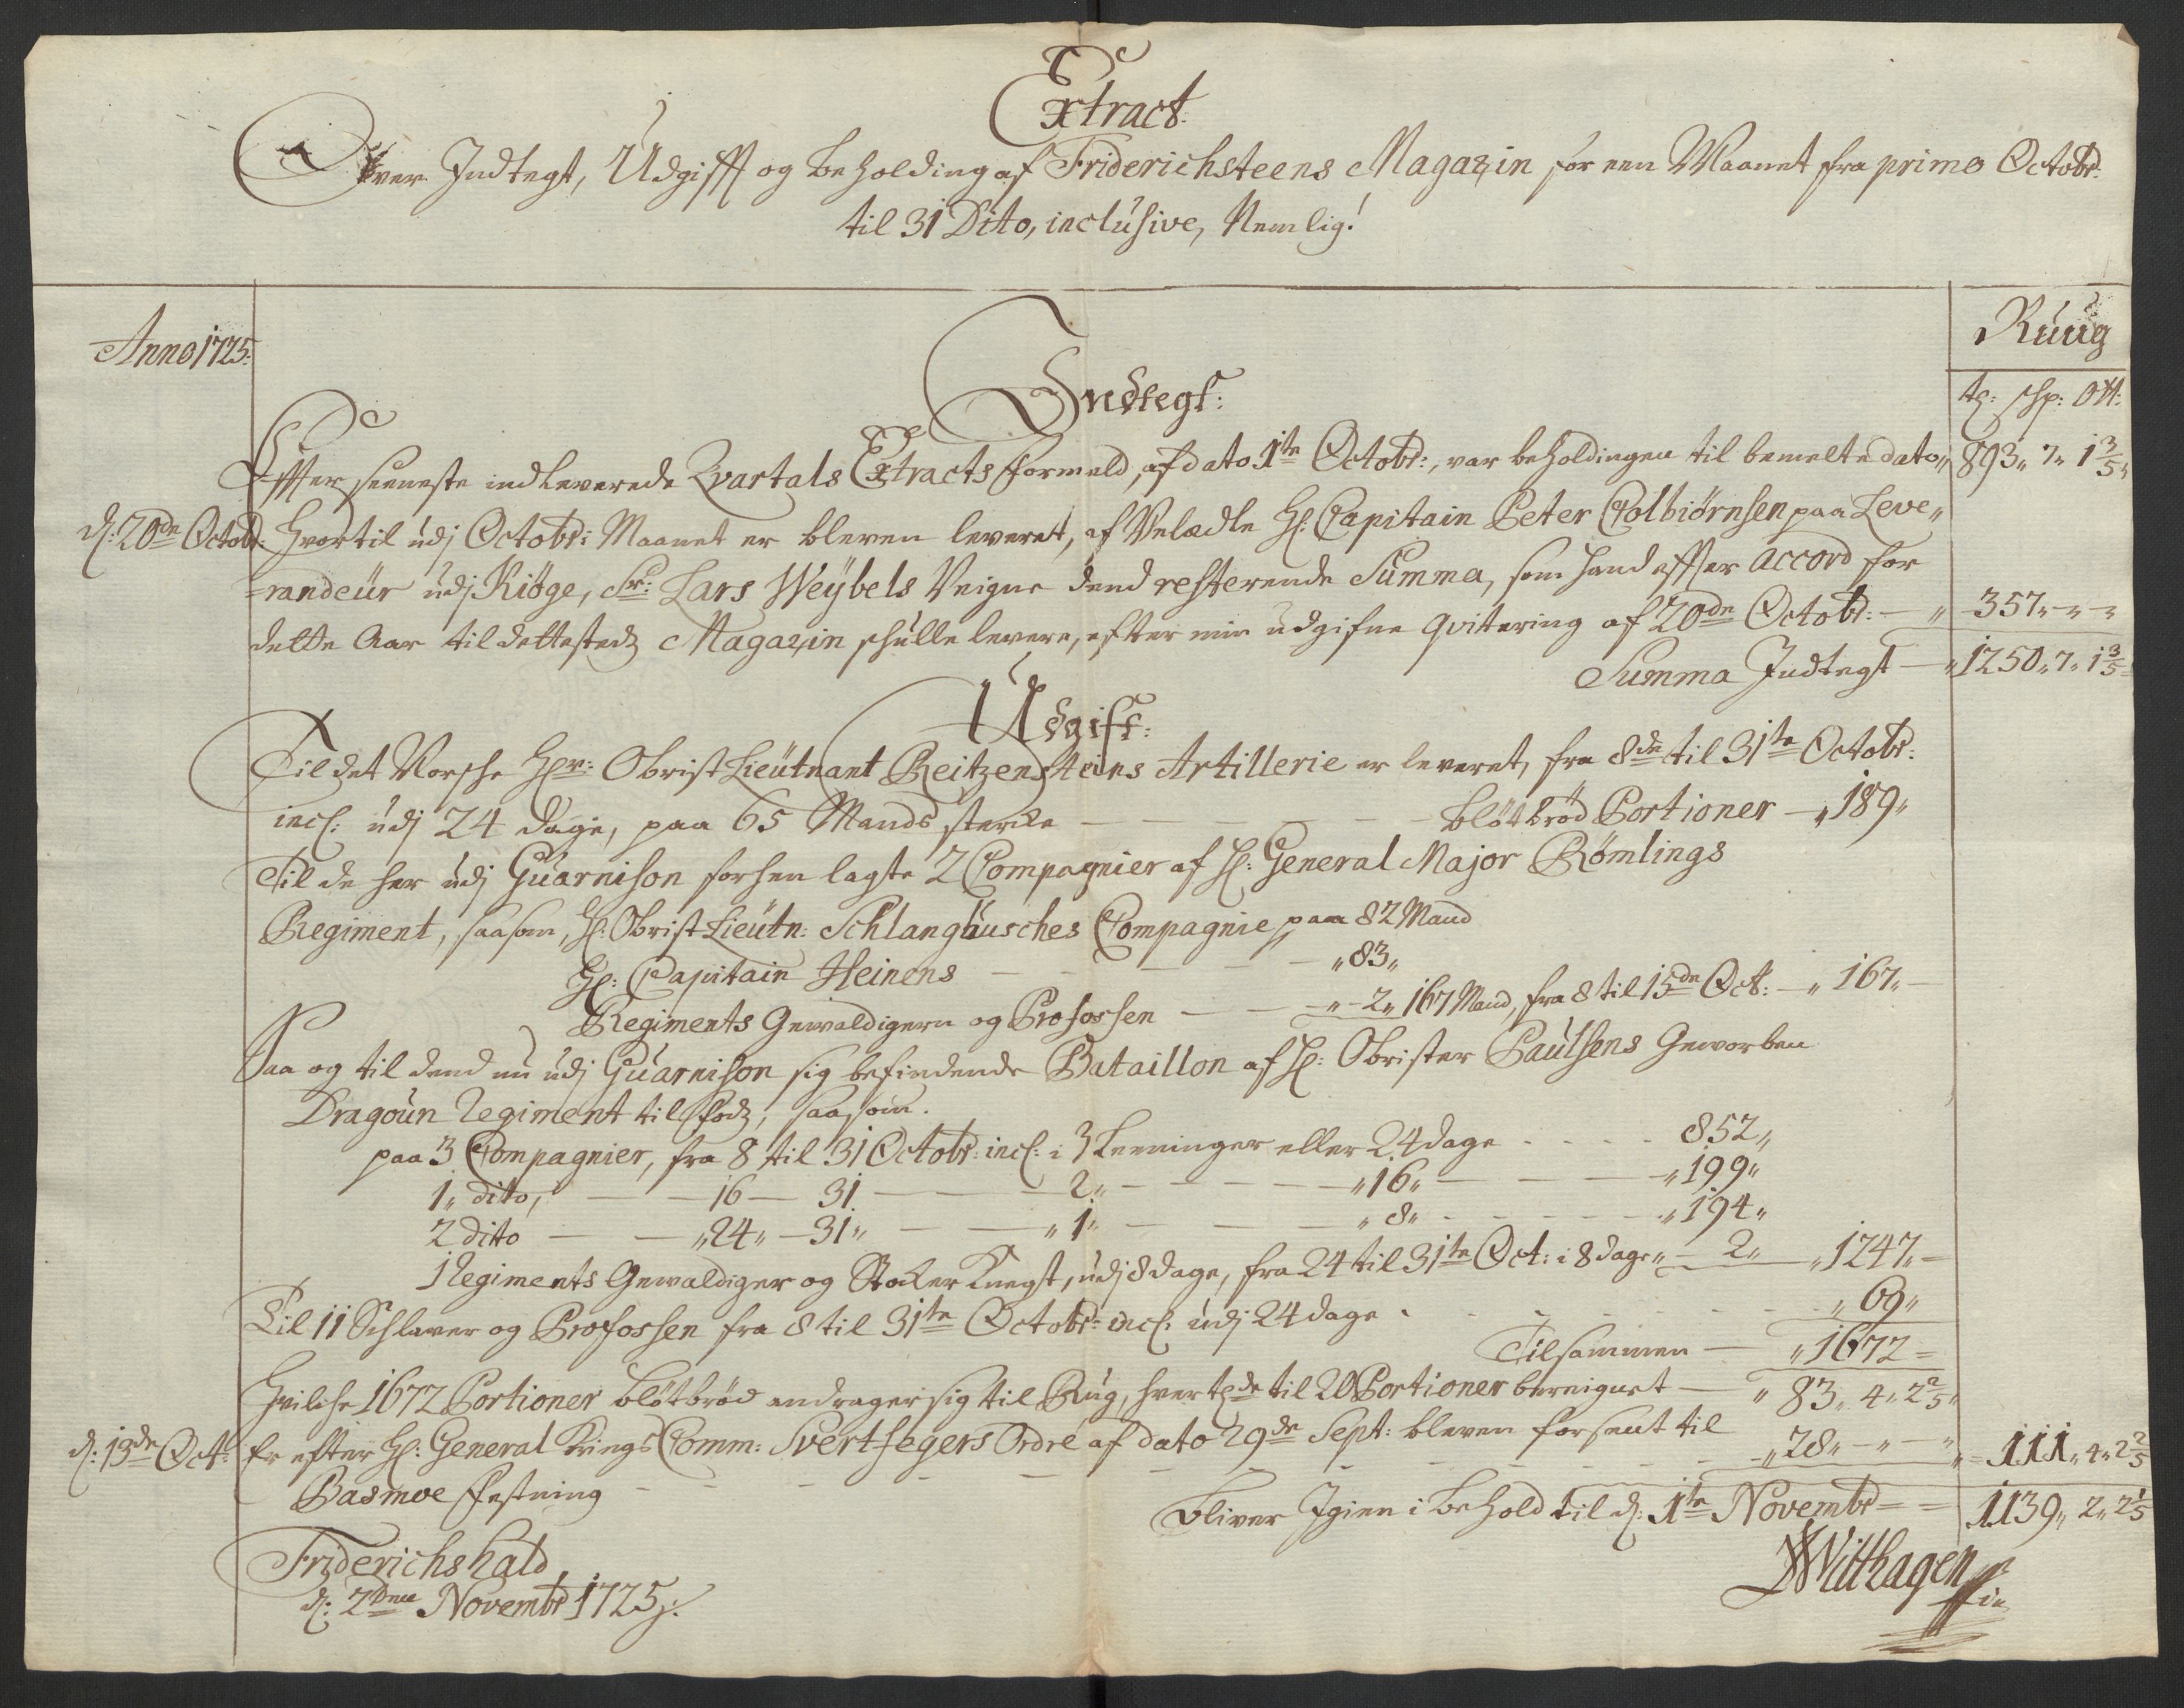 Extract
Over Indtegt, Udgifft og beholding af Friderichsteens Magazin for een Maanet fra primo Octobr:
til 31 Dito, inclusive, Nemlig!
Anno 1725:
Ruug
Indtegt:
tz: schp: Ott:
Effter seeneste indleverede Qvartals Extracts formeld, af dato 1te Octobr:, var beholdingen til bemelte dato„ 893„ 7„ 1 3/5„
d: 20de Octobr: Hvortil udj Octobr: Maanet er bleven leveret, af Velædle Hl: Capitain Peter Colbiørnsen paa Leve„
=randeur udj Kiöge, Sr: Lars Weÿbels Veigne dend resterende Summa, som hand effter accord for
dette Aar til dettestedz Magazin schulle levere, efter min udgifne qvitering af 20de Octobr: — „ 357„ -„ -„
Summa Indtegt — „ 1250„ 7„ 1 3/5
Udgift:
Til det Norsche Hr: Obrist Lieutnant Reitzensteins Artillerie er leveret, fra 8de til 31te Octobr:
incl: udj 24 dage, paa 65 Mands sterke — — — — bløtbrød Portioner — „189„
Til de her udj Guarnison forhen lagte 2 Compagnier af Hl: General Major Römlings
Regiment, saasom, Hl: Obrist Lieutn: Schlanghusches Compagnie paa 82 Mand
Hl: Capitain Heinens — — — — „83„
Regiments Gewaldigern og Profossen — — „-2„ 167 Mand, fra 8 til 15de Oct: — „ 167„ —
Saa og til dend nu udj Guarnison sig befindende Bataillon af Hl: Obrister Paulsens Geworben
Dragoun Regiment til fodz, saasom.
paa 3 Compagnier, fra 8 til 31 Octobr: incl: i 3 Leeninger eller 24 dage . . . . 852„
1„ dito, — — 16 — 31 — — — 2„ — — — — „16„ — — — „199„
2 dito — — „24„ — 31„ — — „1„ — — — „8„ . . . . . „194„
1 Regiments Gewaldiger og Stocker Knegt, udj 8 dage, fra 24 til 31te Oct: i 8 dage„ — 2„ „1247„ —
Til 11 Schlaver og Profossen fra 8 til 31te Octobr: incl: udj 24 dage . . . . . . . „69„
Tilsammen — „1672 =
Hvilche 1672 Portioner bløtbrød andrager sig til Rug, hver tzde til 20 Portioner bereignet — „83„ 4„ 2 2/5„
d: 13de Oct: Er efter Hl: General Krings Comm: Svertfegers Ordre af dato 29de Sept: bleven forsent til
Basmoe Festning — — — — — — — — „28„ -„ -„ „= 111„ 4„ 2 2/5
Bliver Igien i behold til d: 1te Novembr = = 1139„ 2„ 2 1/5
Friderichshald
d: 2den Novembr 1725.
Witthagen